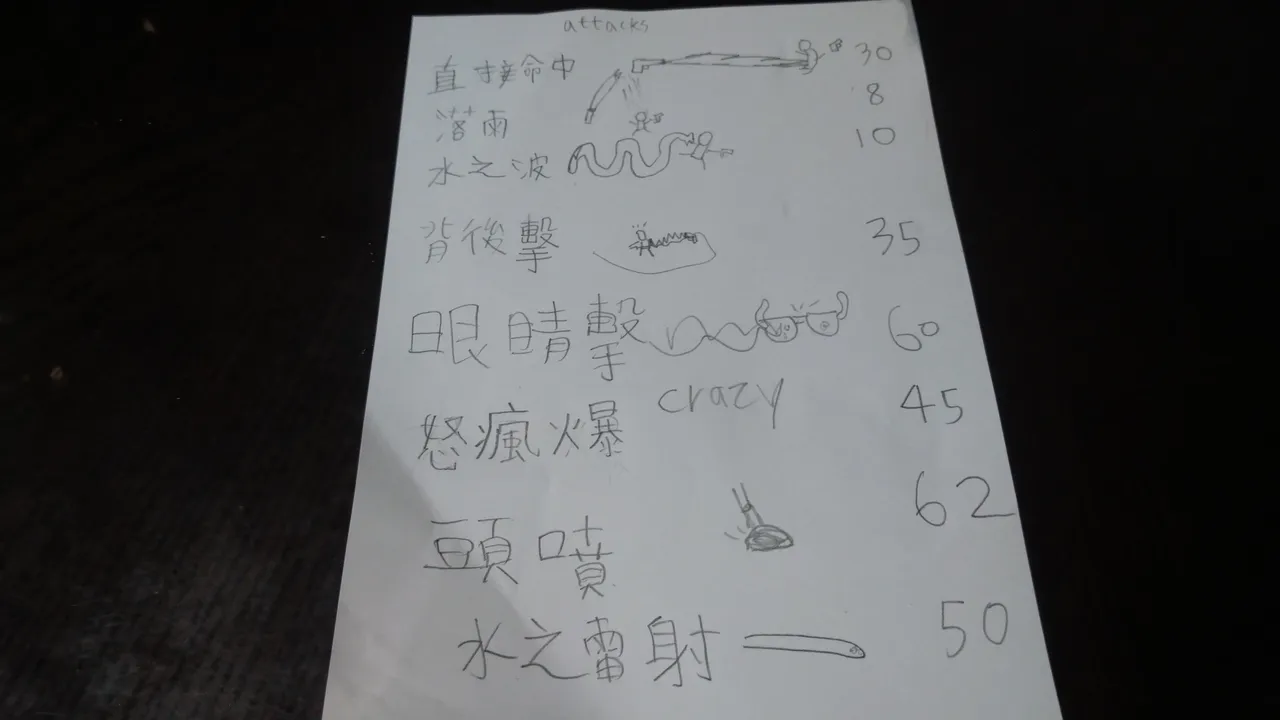 attacks
直接命中 30
落雨 8
水之波 10
背後擊 35
眼睛擊 60
怒瘋爆 crazy 45
頭噴 62
水之雷射 50